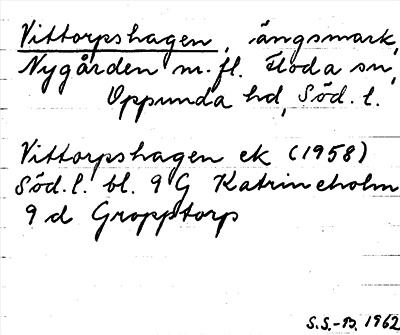 Vittorpshagen, ängsmark,
Nygården m.fl. Floda sn,
Oppunda hd, Söd. l.
Vittorpshagen ek (1958)
Söd. l. bl. 9 G Katrineholm
9 d Gropptorp
S.S.-B. 1962